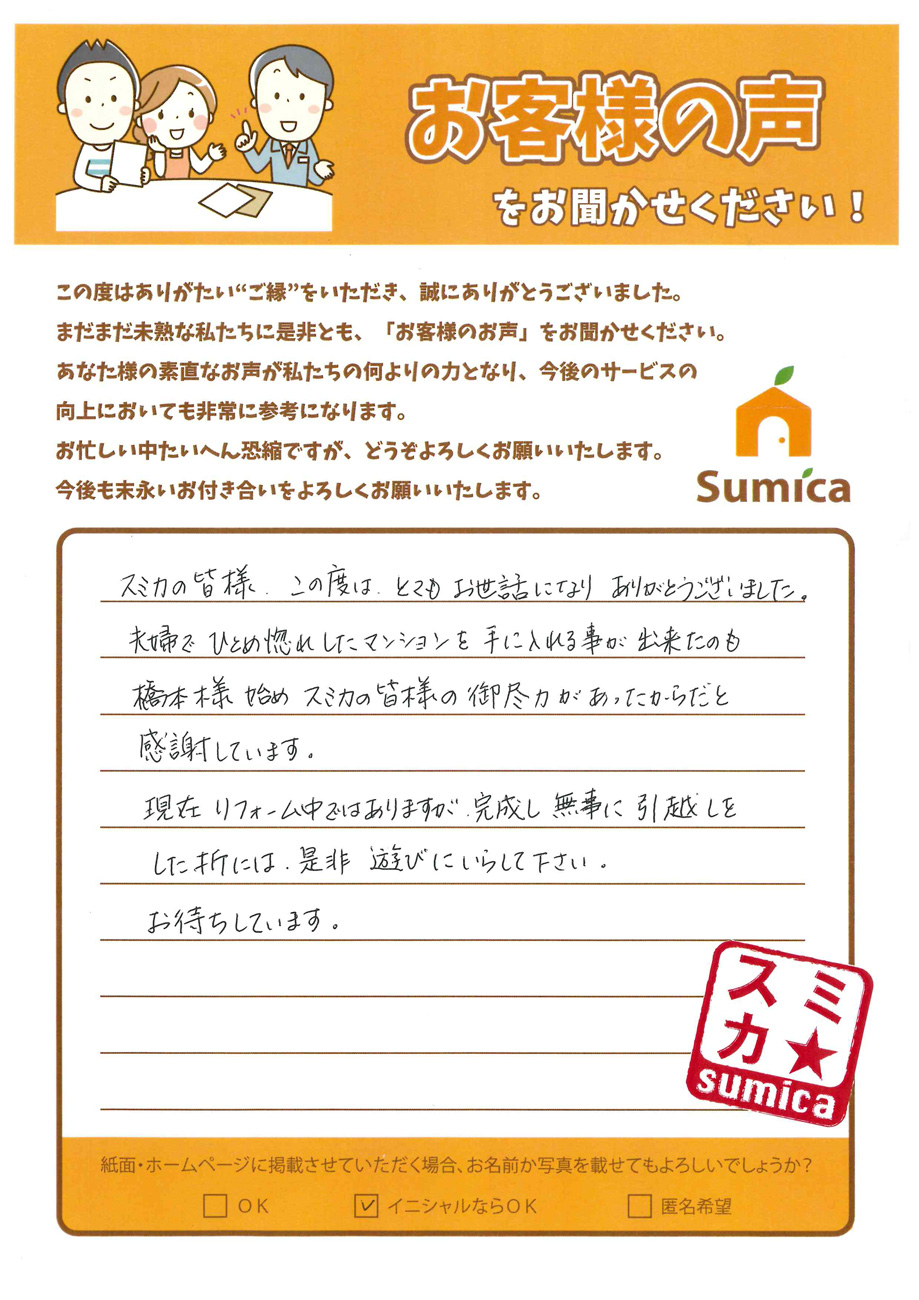 お客様の声
をお聞かせください！
この度はありがたい“ご縁”をいただき、誠にありがとうございました。
まだまだ未熟な私たちに是非とも、「お客様のお声」をお聞かせください。
あなた様の素直なお声が私たちの何よりの力となり、今後のサービスの
向上においても非常に参考になります。
お忙しい中たいへん恐縮ですが、どうぞよろしくお願いいたします。
今後も末永いお付き合いをよろしくお願いいたします。
Sumica
スミカの皆様、この度は、とてもお世話になり ありがとうございました。
夫婦で ひとめ惚れしたマンションを 手に入れる事が 出来たのも
橋本様 始め スミカの皆様の 御尽力があったからだと
感謝しています。
現在 リフォーム中ではありますが、完成し 無事に 引越しを
した折には、是非 遊びにいらして下さい。
お待ちしています。
スミ
カ★
sumica
紙面・ホームページに掲載させていただく場合、お名前か写真を載せてもよろしいでしょうか？
□ OK ☑ イニシャルならOK □ 匿名希望